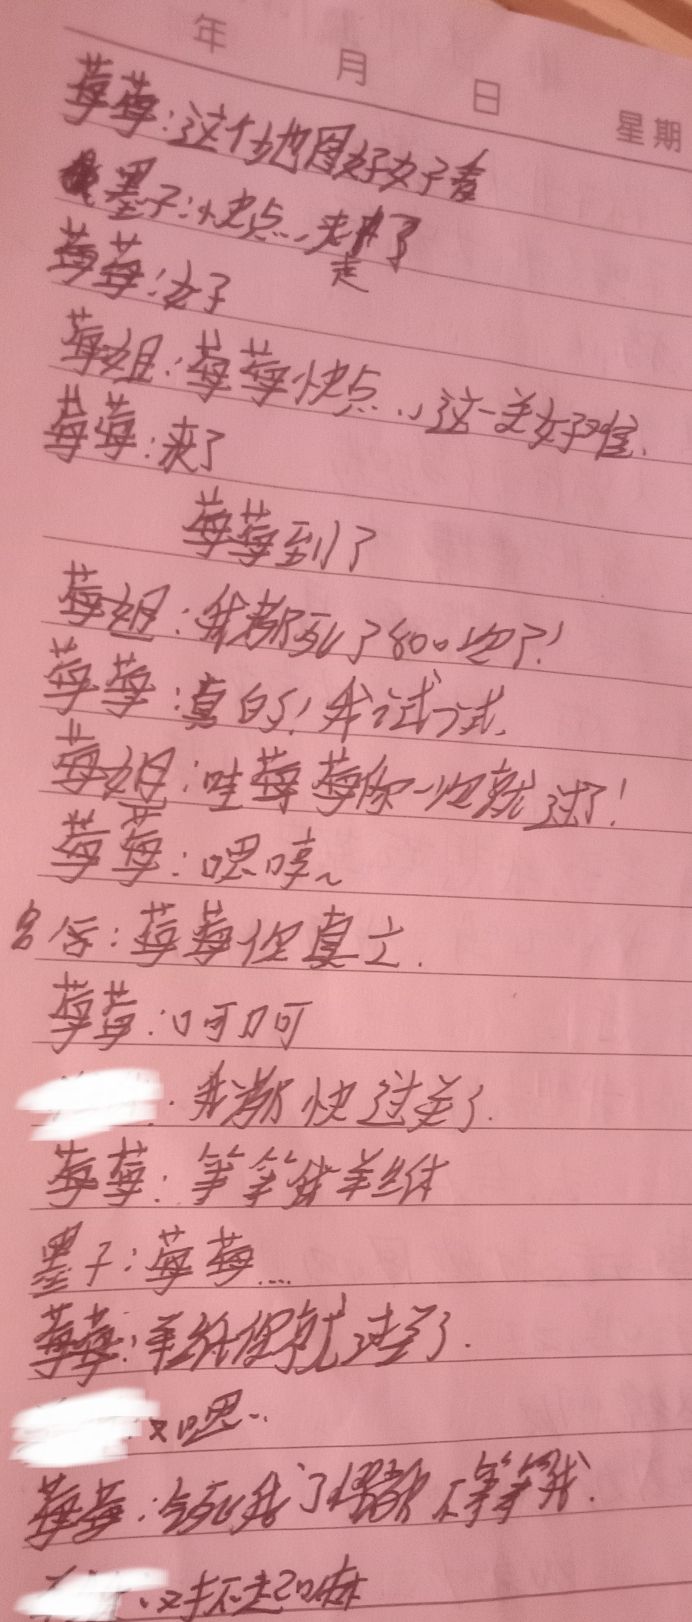 年 月 日 星期
莓莓：这个地图好好看
墨子：快点..走了
莓莓：好
莓姐：莓莓快点..这一关好难.
莓莓：来了
莓莓到了
莓姐：我都死了800次了！
莓莓：真的！我试一试.
莓姐：哇莓莓你一次就过了！
莓莓：嗯哼~
莓莓你真
莓莓：呵呵
：我都快过关了.
莓莓：等等我
墨子：莓莓...
莓莓：就过关了.
：嗯..
莓莓：死我了都不等等我.
：对不起嘛